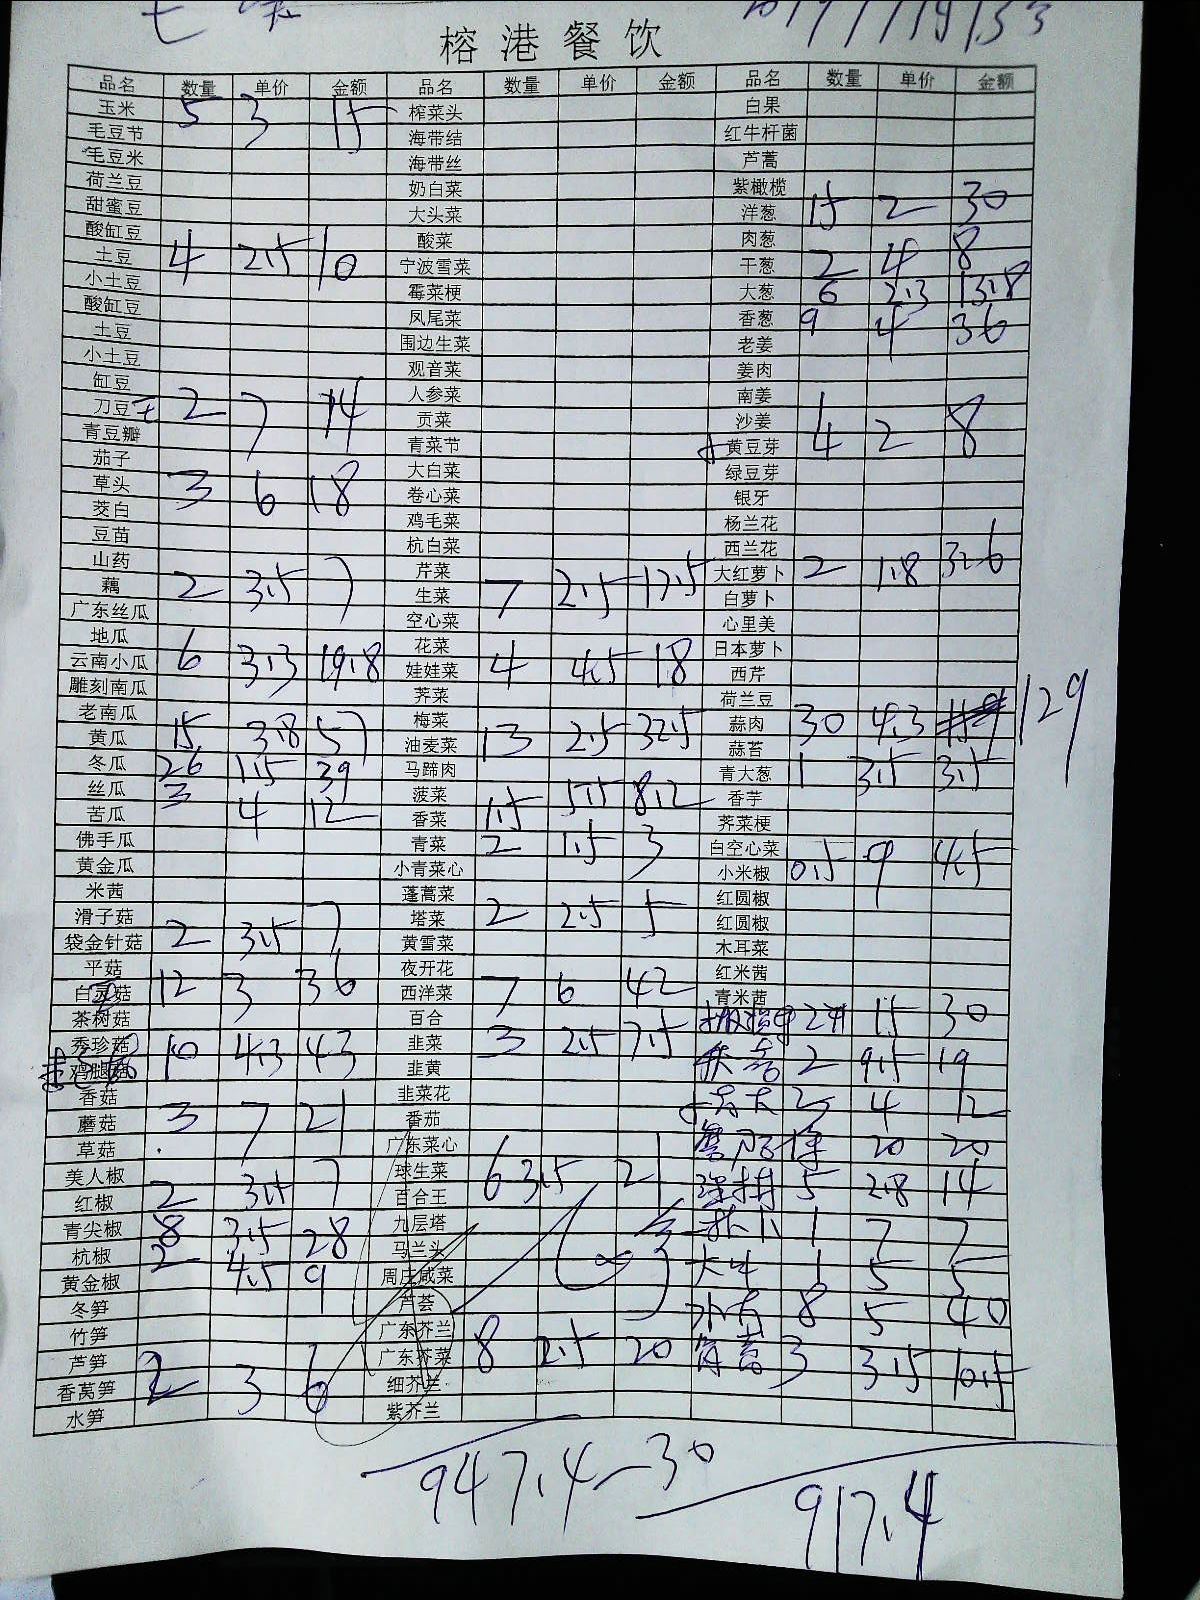 榕港餐饮
品名 数量 单价 金额 品名 数量 单价 金额 品名 数量 单价 金额
玉米 5 3 15 榨菜头 白果
毛豆节 海带结 红牛杆菌
毛豆米 海带丝 芦蒿
荷兰豆 奶白菜 紫橄榄
甜蜜豆 大头菜 洋葱 15 2 30
酸缸豆 酸菜 肉葱
土豆 4 2.5 10 宁波雪菜 干葱 2 4 8
小土豆 霉菜梗 大葱 6 2.3 13.8
酸缸豆 凤尾菜 香葱 9 4 36
土豆 围边生菜 老姜
小土豆 观音菜 姜肉
缸豆 人参菜 南姜
刀豆 2 7 14 贡菜 沙姜
青豆瓣 青菜节 黄豆芽 4 2 8
茄子 大白菜 绿豆芽
草头 3 6 18 卷心菜 银牙
茭白 鸡毛菜 杨兰花
豆苗 杭白菜 西兰花
山药 芹菜 大红萝卜 2 1.8 3.6
藕 2 3.5 7 生菜 7 2.5 17.5 白萝卜
广东丝瓜 空心菜 心里美
地瓜 花菜 日本萝卜
云南小瓜 6 3.3 19.8 娃娃菜 4 4.5 18 西芹
雕刻南瓜 荠菜 荷兰豆
老南瓜 梅菜 蒜肉 30 4.3 129
黄瓜 15 3.8 57 油麦菜 13 2.5 32.5 蒜苔
冬瓜 26 1.5 39 马蹄肉 青大葱 1 3.5 3.5
丝瓜 3 4 12 菠菜 香芋
苦瓜 香菜 1.5 5.5 8.2 荠菜梗
佛手瓜 青菜 2 1.5 3 白空心菜
黄金瓜 小青菜心 小米椒 0.5 9 4.5
米茜 蓬蒿菜 红圆椒
滑子菇 塔菜 2 2.5 5 红圆椒
袋金针菇 2 3.5 7 黄雪菜 木耳菜
平菇 夜开花 红米茜
白灵菇 12 3 36 西洋菜 7 6 42 青米茜
茶树菇 百合 2 15 30
秀珍菇 10 4.3 43 韭菜 3 2.5 7.5 2 9.5 19
鸡腿菇 韭黄
香菇 韭菜花 4 12
蘑菇 3 7 21 番茄
草菇 广东菜心 20 20
美人椒 球生菜 6 3.5 21 5 2.8 14
红椒 2 3.5 7 百合王
青尖椒 8 3.5 28 九层塔 1 7 7
杭椒 2 4.5 9 马兰头
黄金椒 周庄咸菜 大 1 5 5
冬笋 芦荟 8 5 40
竹笋 广东芥兰
芦笋 广东芥菜 8 2.5 20 3 3.5 10.5
香莴笋 2 3 6 细芥兰
水笋 紫芥兰
947.4-30
917.4